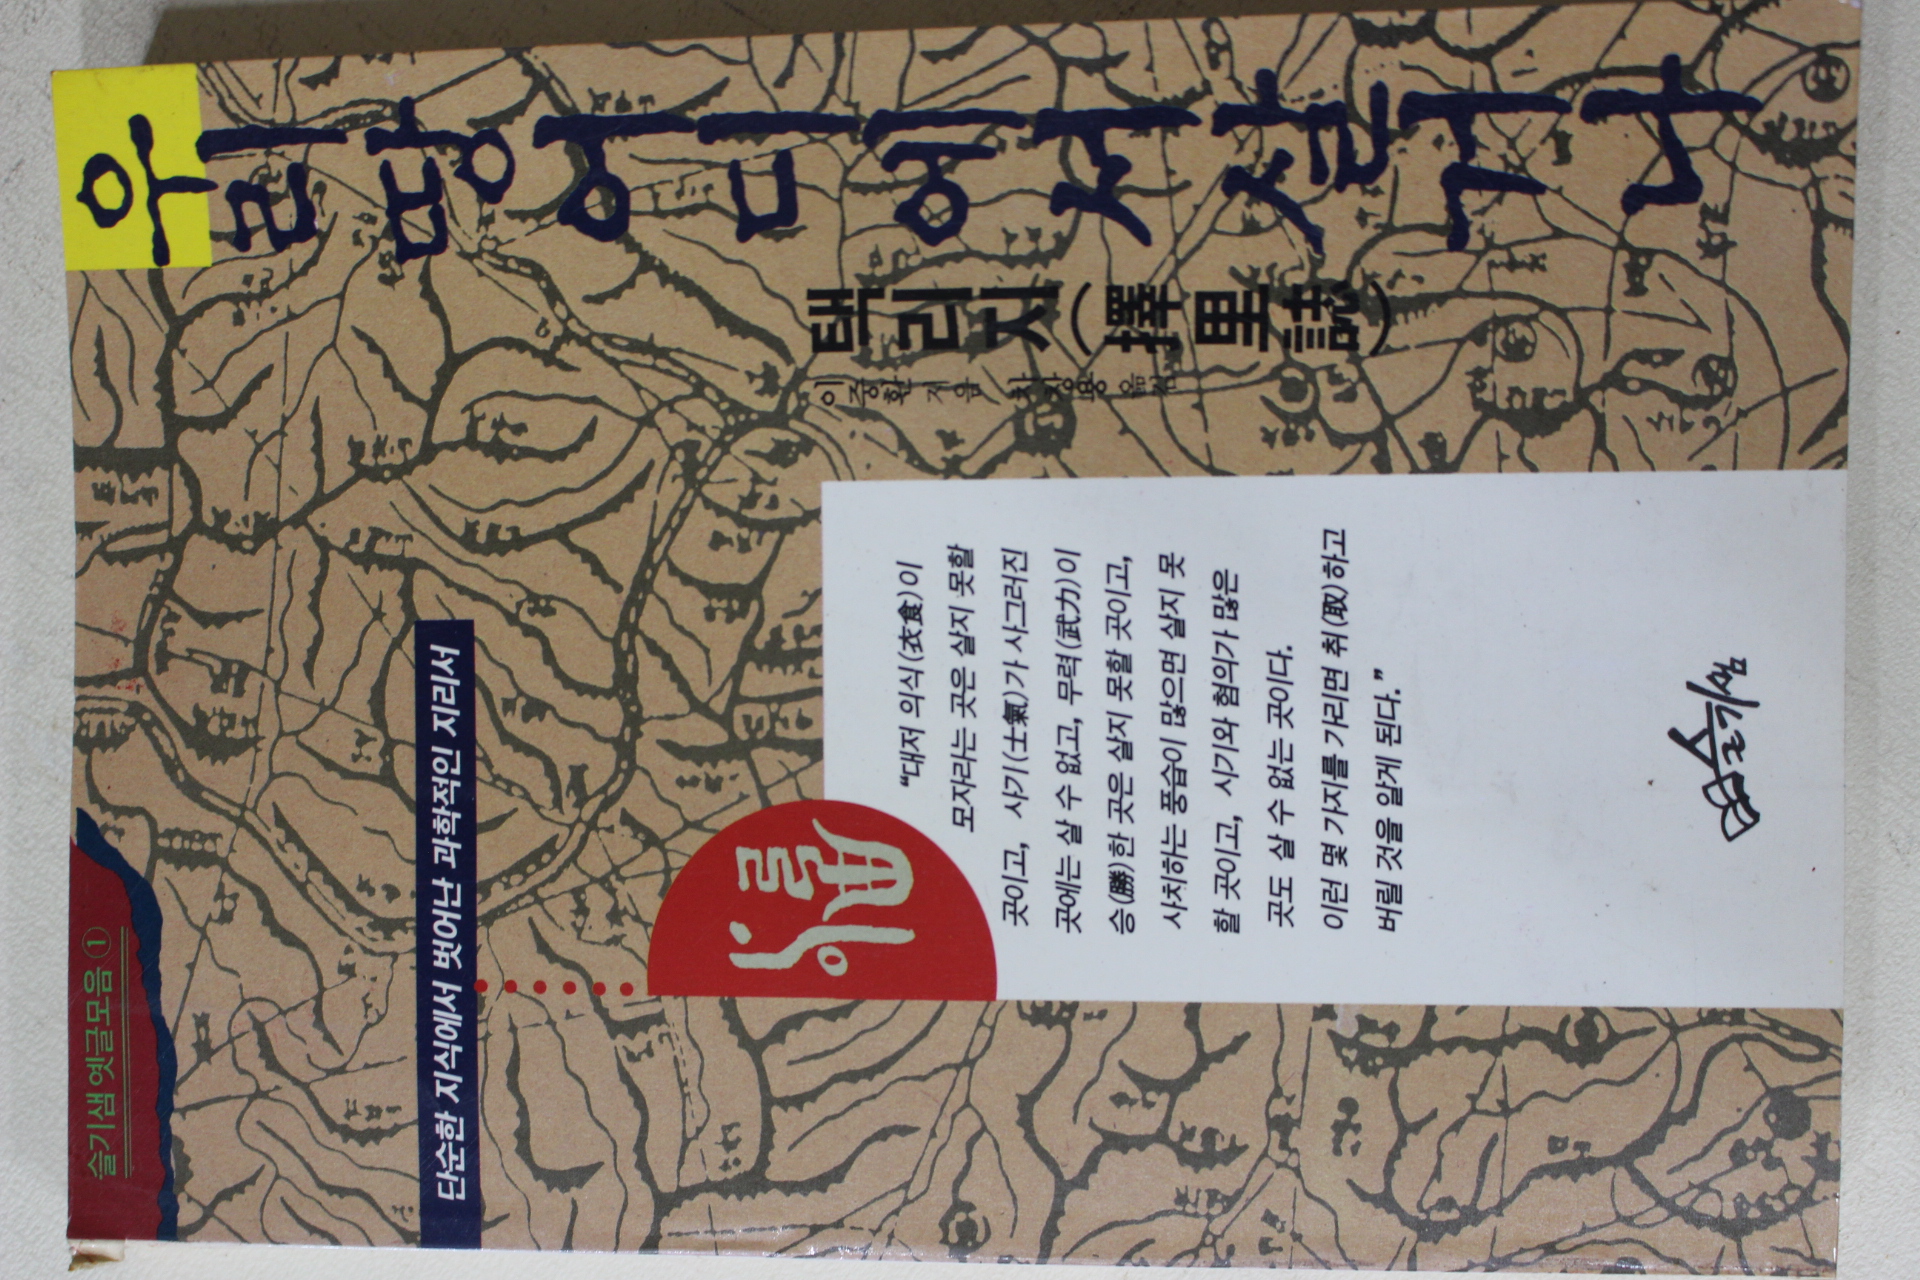 슬기샘 옛글모음 ①
우리 땅 어디에서 살거나
택리지(擇里誌)
이중환 지음
옮김
단순한 지식에서 벗어난 과학적인 지리서
“대저 의식(衣食)이
모자라는 곳은 살지 못할
곳이고, 사기(士氣)가 사그러진
곳에는 살 수 없고, 무력(武力)이
승(勝)한 곳은 살지 못할 곳이고,
사치하는 풍습이 많으면 살지 못
할 곳이고, 시기와 혐의가 많은
곳도 살 수 없는 곳이다.
이런 몇 가지를 가리면 취(取)하고
버릴 것을 알게 된다.”
슬기샘